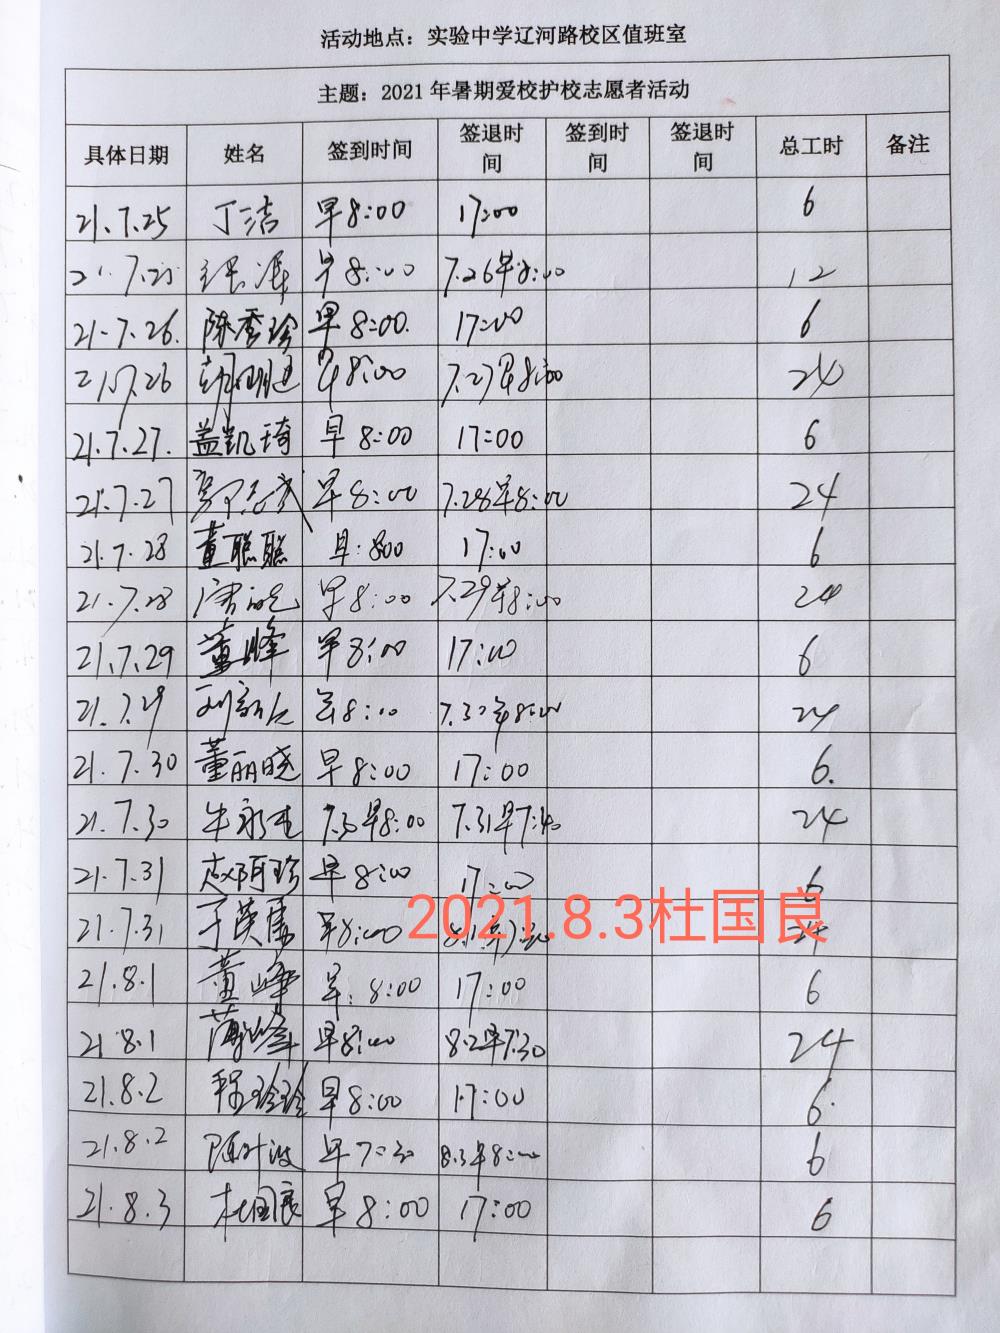 活动地点：实验中学辽河路校区值班室
主题：2021年暑期爱校护校志愿者活动
具体日期 姓名 签到时间 签退时间 签到时间 签退时间 总工时 备注
21.7.25 丁洁 早8:00 17:00 6
21.7.25 早8:00 7.26早8:00 12
21.7.26. 陈秀珍 早8:00. 17:00 6
21.7.26 早8:00 7.27早8:00 24
21.7.27. 盖凯琦 早8:00 17:00 6
21.7.27 早8:00 7.28早8:00 24
21.7.28 董聪聪 早:800 17:00 6
21.7.28 早8:00 7.29早8:00 24
21.7.29 董峰 早8:00 17:00 6
21.7.29 刘新仁 早8:00 7.30早8:00 24
21.7.30 董丽晓 早8:00 17:00 6.
21.7.30 牛永 7.30早8:00 7.31早7:40 24
21.7.31 赵珍 早8:00 17:00 6
21.7.31 于英 早8:00 24
2021.8.3杜国良
21.8.1 董峰 早:8:00 17:00 6
21.8.1 薄峰 早8:00 8.2早7:30 24
21.8.2 程玲玲 早8:00 17:00 6
21.8.2 早7:30 8.3早8:00 6
21.8.3 杜国良 早8:00 17:00 6